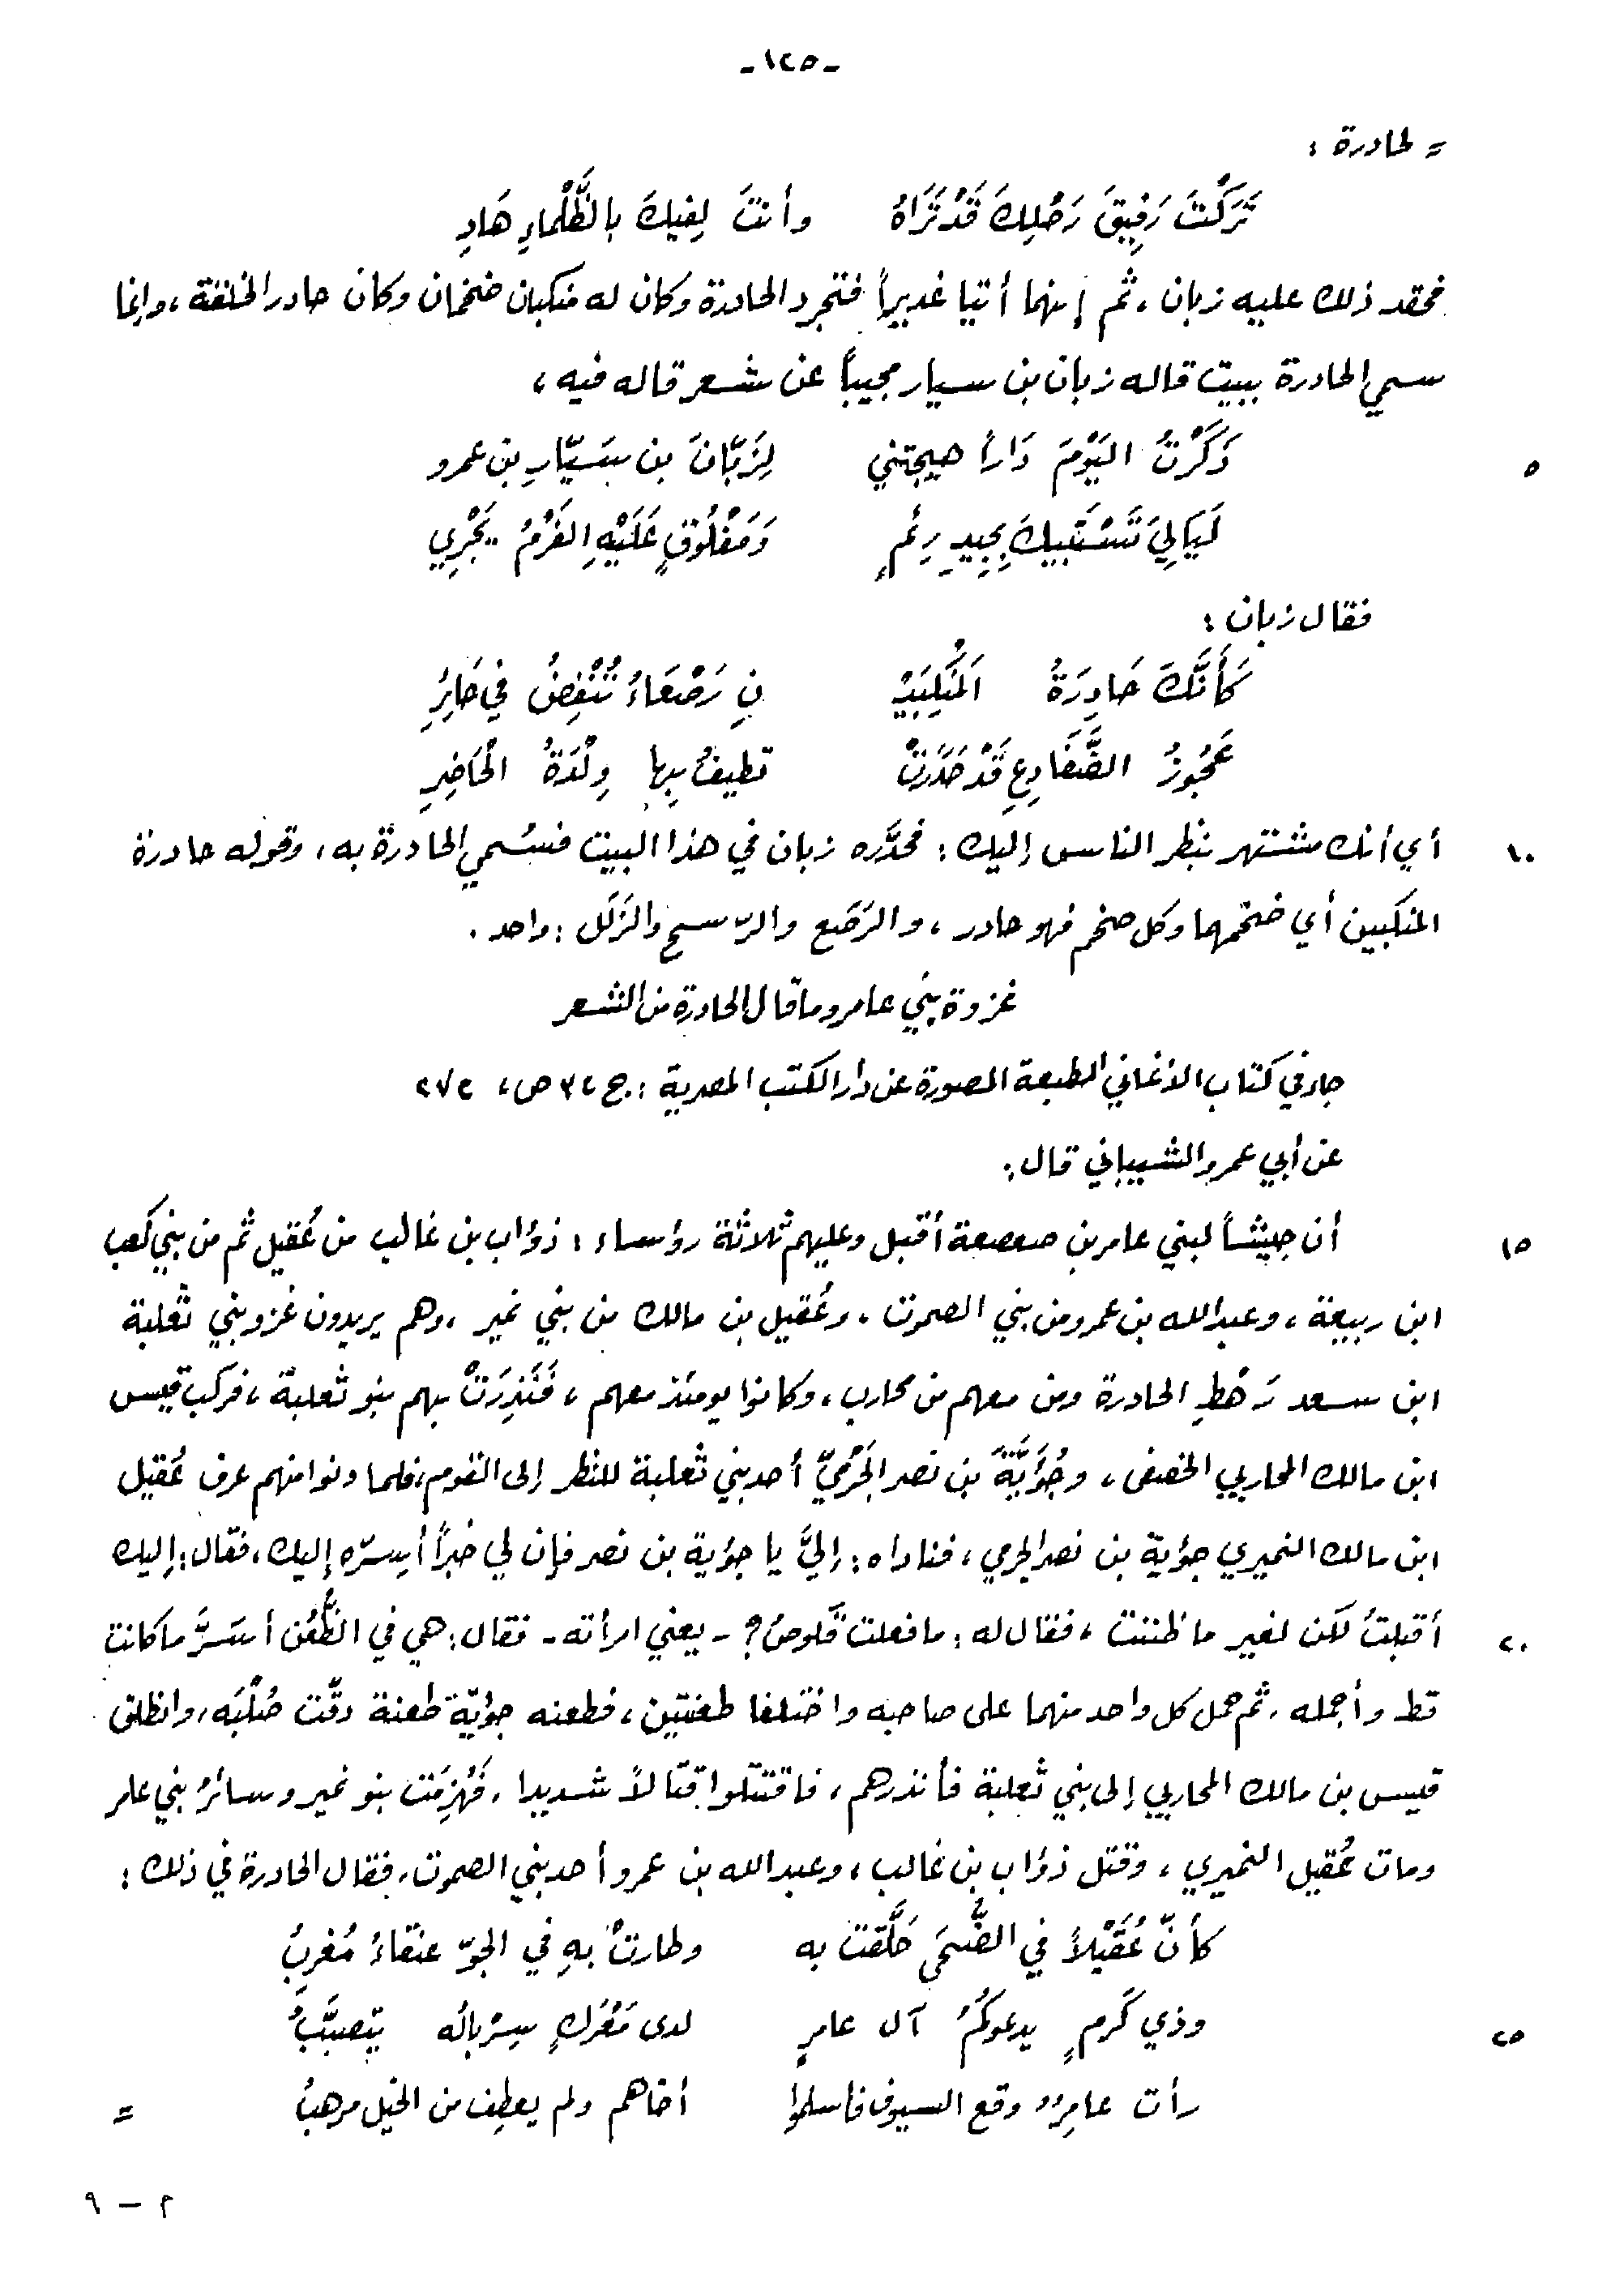 -١٢٥-
= لحادرة :
تَرَكْتَ رَفِيقَ رَحْلِكَ قَدْ تَرَاهُ وأنتَ لِفيكَ بالظَّلْماءِ هَادِ
فحقد ذلك عليه زبان، ثم إنهما أتيا غديراً فتجرد الحادرة وكان له منكبان ضخمان وكان حادر الخلقة، وإنما
سمي الحادرة ببيت قاله زبان بن سيار مجيباً عن شعر قاله فيه،
٥ ذَكَرْتُ اليَوْمَ دَاراً هيجتني لِزَبَّانَ بن سَيّارِ بن عمرو
لَيَالِيَ تَسْتَبِيكَ بِجِيدِ رِئمٍ وَمَفْلُوقٍ عَلَيْهِ الفَرْمُ يَجْرِي
فقال زبان :
كَأَنَّكَ حَادِرَةُ المَنْكِبَيْـ نِ رَصْعَاءُ تُنْقِضُ في حَائِرِ
عَجُوزُ الضَّفَادِعِ قَدْ حَدَّرَتْ تطيفُ بِها وِلْدَةُ الْحَاضِرِ
١٠ أي أنك مشتهر ينظر الناس إليك : فحدَّره زبان في هذا البيت فسُمي الحادرة به، وقوله حادرة
المنكبين أي ضخمهما وكل ضخم فهو حادر، والرَصَع والرّسح والزَلَل : واحد .
غزوة بني عامر وما قال الحادرة من الشعر
جاء في كتاب الأغاني الطبعة المصورة عن دار الكتب المصرية : ج ٣ ص، ٢٧٢
عن أبي عمرو الشيباني قال :
١٥ أن جيشاً لبني عامر بن صعصعة أقبل وعليهم ثلاثة رؤساء : ذؤاب بن غالب من عُقيل ثم من بني كعب
ابن ربيعة، وعبدالله بن عمرو من بني الصموت، وعُقيل بن مالك من بني نمير، وهم يريدون غزو بني ثعلبة
ابن سعد رَهْطِ الحادرة ومن معهم من محارب، وكانوا يومئذ معهم، فَنَذِرَتْ بهم بنو ثعلبة، فركب قيس
ابن مالك المحاربي الخصفي، وجُؤَيَّةَ بن نصر الجَرْميّ أحد بني ثعلبة للنظر إلى القوم، فلما دنوا منهم عرف عُقيل
ابن مالك النميري جؤية بن نصر الجرمي، فناداه : إليَّ يا جؤية بن نصر فإن لي خبراً أسِرّه إليك، فقال : إليك
٢٠ أقبلتُ لكن لغير ما ظننتَ، فقال له : ما فعلت قَلوصُ؟ - يعني امرأته - فقال : هي في الظُّعُن أسَرَّ ما كانت
قط وأجمله، ثم حمل كل واحد منهما على صاحبه واختلفا طعنتين، فطعنه جؤيّة طعنة دقَّت صُلْبَه، وانطلق
قيس بن مالك المحاربي إلى بني ثعلبة فأنذرهم، فاقتتلوا قتالاً شديدا، فَهُزِمَت بنو نمير وسائرُ بني عامر
ومات عُقيل النميري، وقتل ذؤاب بن غالب، وعبدالله بن عمرو أحد بني الصموت، فقال الحادرة في ذلك :
كأنّ عُقَيْلاً في الضُّحَى حَلَّقتْ به وطارتْ بهِ في الجوّ عنقاءُ مُغرِبُ
٢٥ وذي كَرمٍ يدعوكُمُ آل عامرٍ لدى مَعْرَكٍ سِرْبالُه يَتصبَّبُ
رأت عامِرٌ وقع السيوف فأسلموا أخاهم ولم يعطِف من الخيل مرهبُ =
٢ - ٩